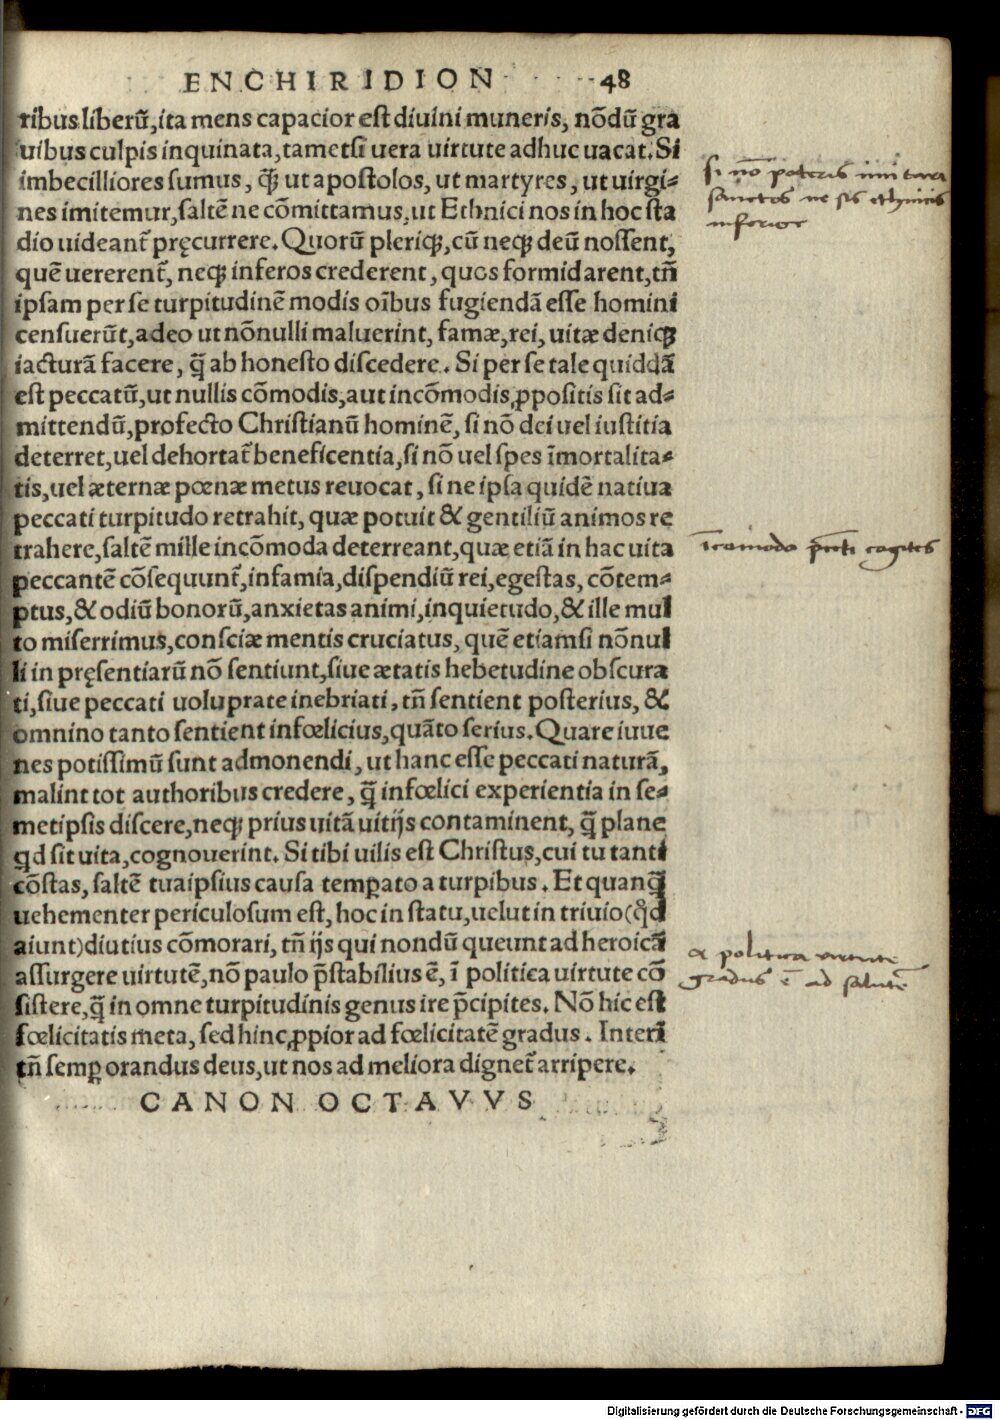 ENCHIRIDION 48
ribus liberū, ita mens capacior est diuini muneris, nōdū gra
uibus culpis inquinata, tametsi uera uirtute adhuc uacat. Si
imbecilliores sumus, ꝙ̄ ut apostolos, ut martyres, ut uirgi-
nes imitemur, saltē ne cōmittamus, ut Ethnici nos in hoc sta
dio uideant᷑ pręcurrere. Quorū pleriqꝫ, cū neqꝫ deū nossent,
quē uererent᷑, neqꝫ inferos crederent, quos formidarent, tñ
ipsam per se turpitudinē modis oībus fugiendā esse homini
censuerūt, adeo ut nōnulli maluerint, famæ, rei, uitæ deniqꝫ
iacturā facere, q̄ ab honesto discedere. Si per se tale quiddā
est peccatū, ut nullis cōmodis, aut incōmodis, ꝓpositis sit ad-
mittendū, profecto Christianū hominē, si nō dei uel iustitia
deterret, uel dehortat᷑ beneficentia, si nō uel spes īmortalita-
tis, uel æternæ pœnæ metus reuocat, si ne ipsa quidē natiua
peccati turpitudo retrahit, quæ potuit & gentiliū animos re
trahere, saltē mille incōmoda deterreant, quæ etiā in hac uita
peccantē cōsequunt᷑, infamia, dispendiū rei, egestas, cōtem-
ptus, & odiū bonorū, anxietas animi, inquietudo, & ille mul
to miserrimus, consciæ mentis cruciatus, quē etiamsi nōnul
li in pręsentiarū nō sentiunt, siue ætatis hebetudine obscura
ti, siue peccati uoluprate inebriati, tñ sentient posterius, &
omnino tanto sentient infœlicius, quāto serius. Quare iuue
nes potissimū sunt admonendi, ut hanc esse peccati naturā,
malint tot authoribus credere, q̄ infœlici experientia in se-
metipsis discere, neqꝫ prius uitā uitijs contaminent, q̄ plane
qd sit uita, cognouerint. Si tibi uilis est Christus, cui tu tanti
cōstas, saltē tuaipsius causa temꝑato a turpibus. Et quanq̄
uehementer periculosum est, hoc in statu, uelut in triuio (qd̄
aiunt) diutius cōmorari, tñ ijs qui nondū queunt ad heroicā
assurgere uirtutē, nō paulo p̄stabilius ē, ī politica uirtute cō
sistere, q̄ in omne turpitudinis genus ire p̄cipites. Nō hic est
fœlicitatis meta, sed hinc ꝓpior ad fœlicitatē gradus. Interī
tñ semꝑ orandus deus, ut nos ad meliora dignet᷑ arripere.
CANON OCTAVVS
si nō poteris imitari
sanctos ne sis ethnicis
inferior
īcōmoda p̄cti cogites
a politica uirtute
gradus ē ad salutē
Digitalisierung gefördert durch die Deutsche Forschungsgemeinschaft - DFG